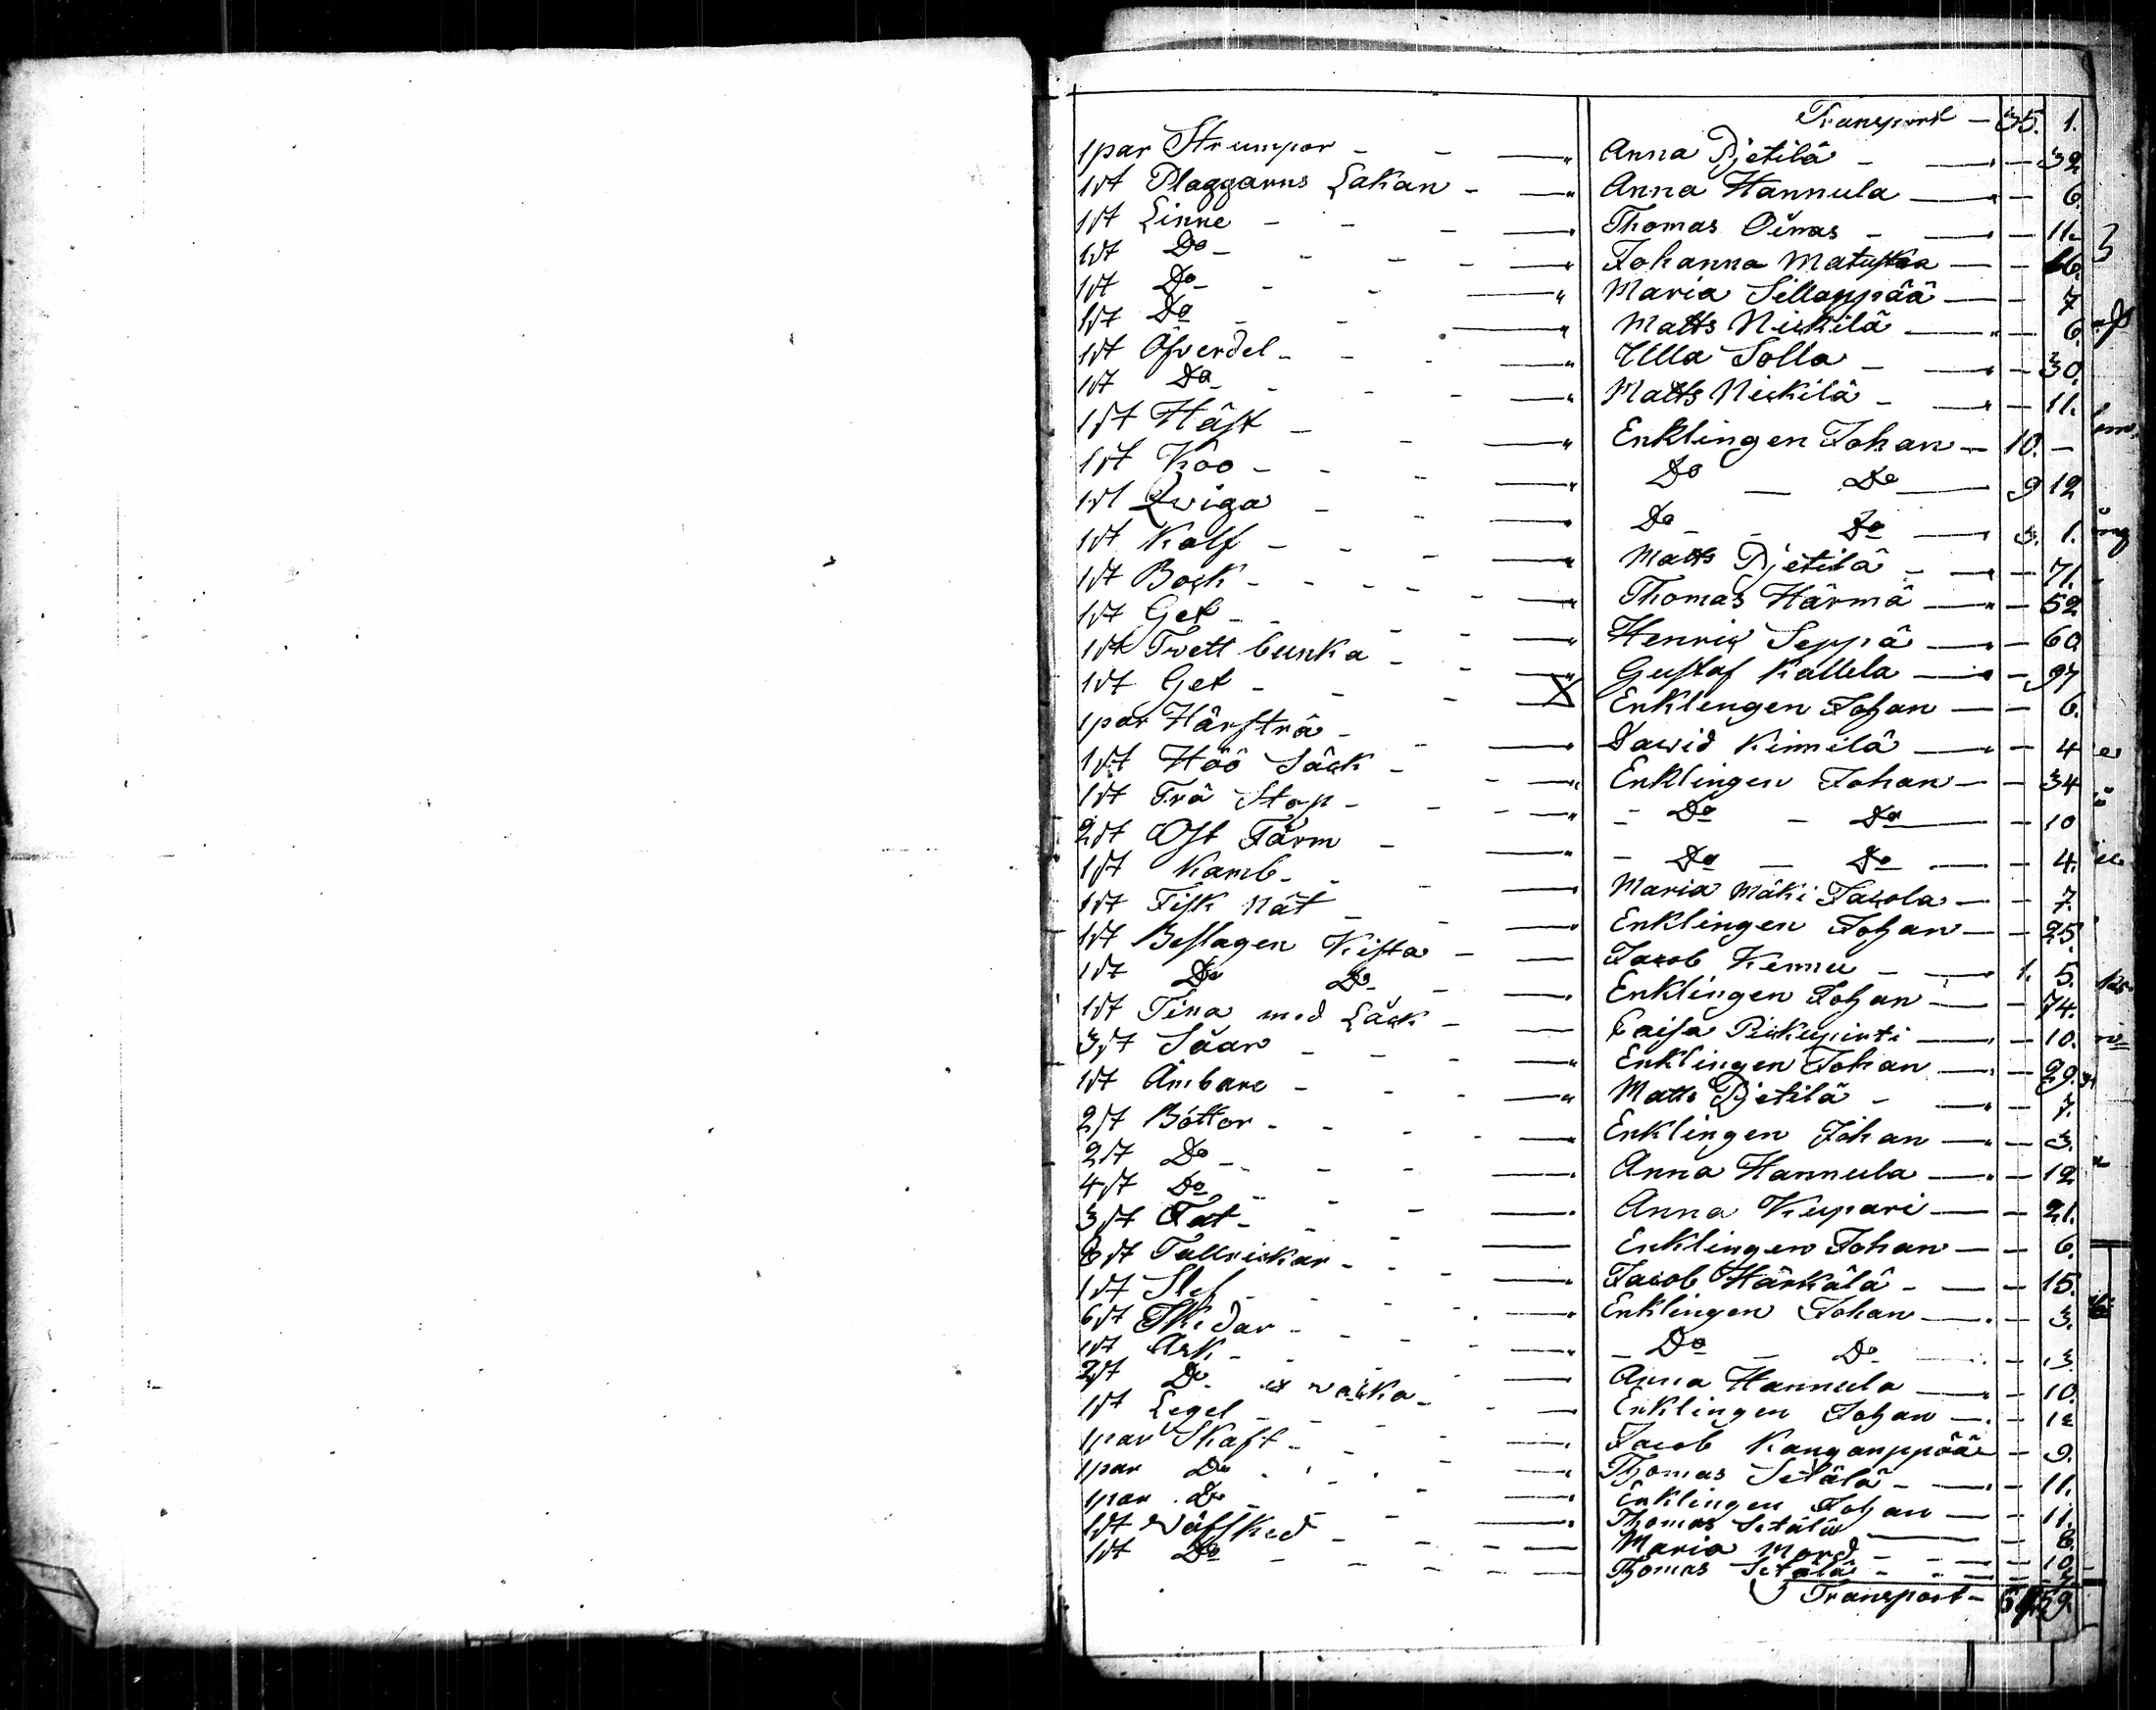 Transport - 35. 1.
1 par Strumpor - - — " Anna Pjetilä - — " - 32
1 st Blaggarns Lakan - — " Anna Hannula — " - 6.
1 st Linne - - - — " Thomas Oinas - — " - 11.
1 st Do - - - - — " Johanna — - 16.
1 st Do - - - — " Maria Sillanpää — - 7
1 st Do - - — " Matts Niskilä — " - 6.
1 st Öfverdel - - - — " Ulla Solla - — " - 30.
1 st Do - - - - — " Matts Niskilä - — " - 11.
1 st Häst - - — " Enklingen Johan — 10. -
1 st Koo - - - — " Do — Do — 9 12
1 st Qwiga - - — " Do - - Do — 3. 1.
1 st Kalf - - - — " Matts Pjetilä - — " - 71.
1 st Bock - - - - - — " Thomas Härmä — " - 52
1 st Get - - - - — " Henric Seppä — " - 60
1 st Twett bunka - - — " Gustaf Kallela — " - 97
1 st Get - - - — X Enklingen Johan — - 6.
1 par Hårsträ - — " Dawid Kinnilä — " - 4
1 st Höö Säck - - — " Enklingen Johan — - 34
1 st Trä Stop - - - — " - Do - Do — - 10
2 st Ost Form - — " - Do — Do — - 4.
1 st Kamb - - - — Maria Mäki Jacola — - 7.
1 st Fisk Nät - - — " Enklingen Johan — - 25.
1 st Beslagen Kista - — Jacob Kinnu - — " 1. 5.
1 st Do Do - - — " Enklingen Johan — - 74.
1 st Tina med Låck - — Caisa — - 10.
3 st Såar - - - — " Enklingen Johan — - 29.
1 st Ämbare - - - — " Matts Pjetilä - — " - 7.
2 st Böttor - - - - — " Enklingen Johan — " - 3.
2 st Do - - - — " Anna Hannula — " - 12
4 st Do - - - — " Anna Kupari — - 21.
3 st Fat - - - — Enklingen Johan — - 6.
8 st Tallrickar - - - — " Jacob Härkälä - — - 15.
1 st Slef - - - - — " Enklingen Johan — " - 3.
6 st Skedar - - - - — " - Do — Do — " - 3.
1 st Ask - - - - — Anna Hannula — " - 10.
2 st Do - — Enklingen Johan — " - 12
1 st Legel - - - — " Jacob Kanganppää - 9.
1 par Skaft - - - — " Thomas Setälä - — " - 11.
1 par Do - - - — " Enklingen Johan — - 11.
1 par Do - - — " Thomas Setälä — - 8.
1 st Wäfsked - - - — Maria Mord - - — - 10.
1 st Do - - - - - — Thomas Setälä - - —
Transport - 59.